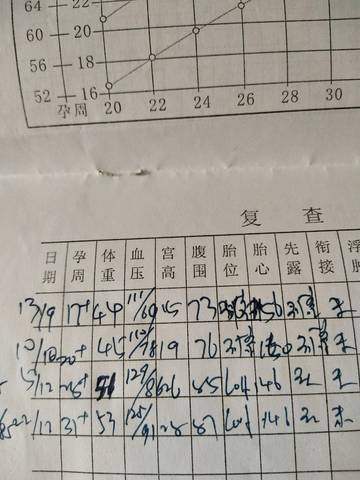 64 22
60 20
56 18
52 16
20 22 24 26 28 30
孕周
复 查
日期 孕周 体重 血压 宫高 腹围 胎位 胎心 先露 衔接 浮肿
13/9 17+ 44 111/69 15 73 156 未
20+ 45 19 76 未
5/12 28+ 51 129/86 26 85 LOA 146 头 未
22/12 31+ 53 125/91 28 87 LOA 146 头 未